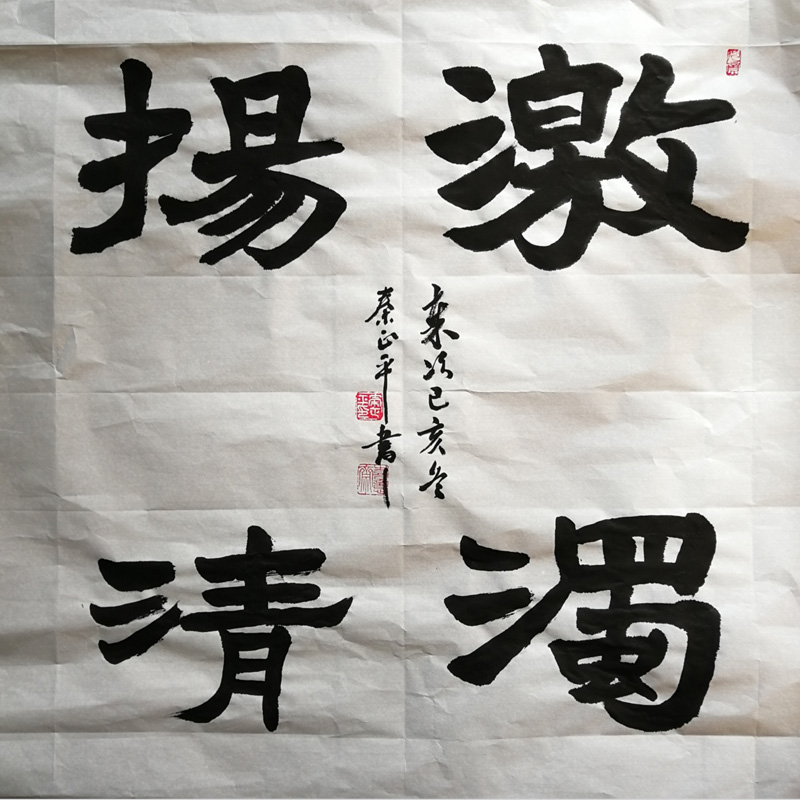 激濁
揚清
岁次己亥冬
秦正平書